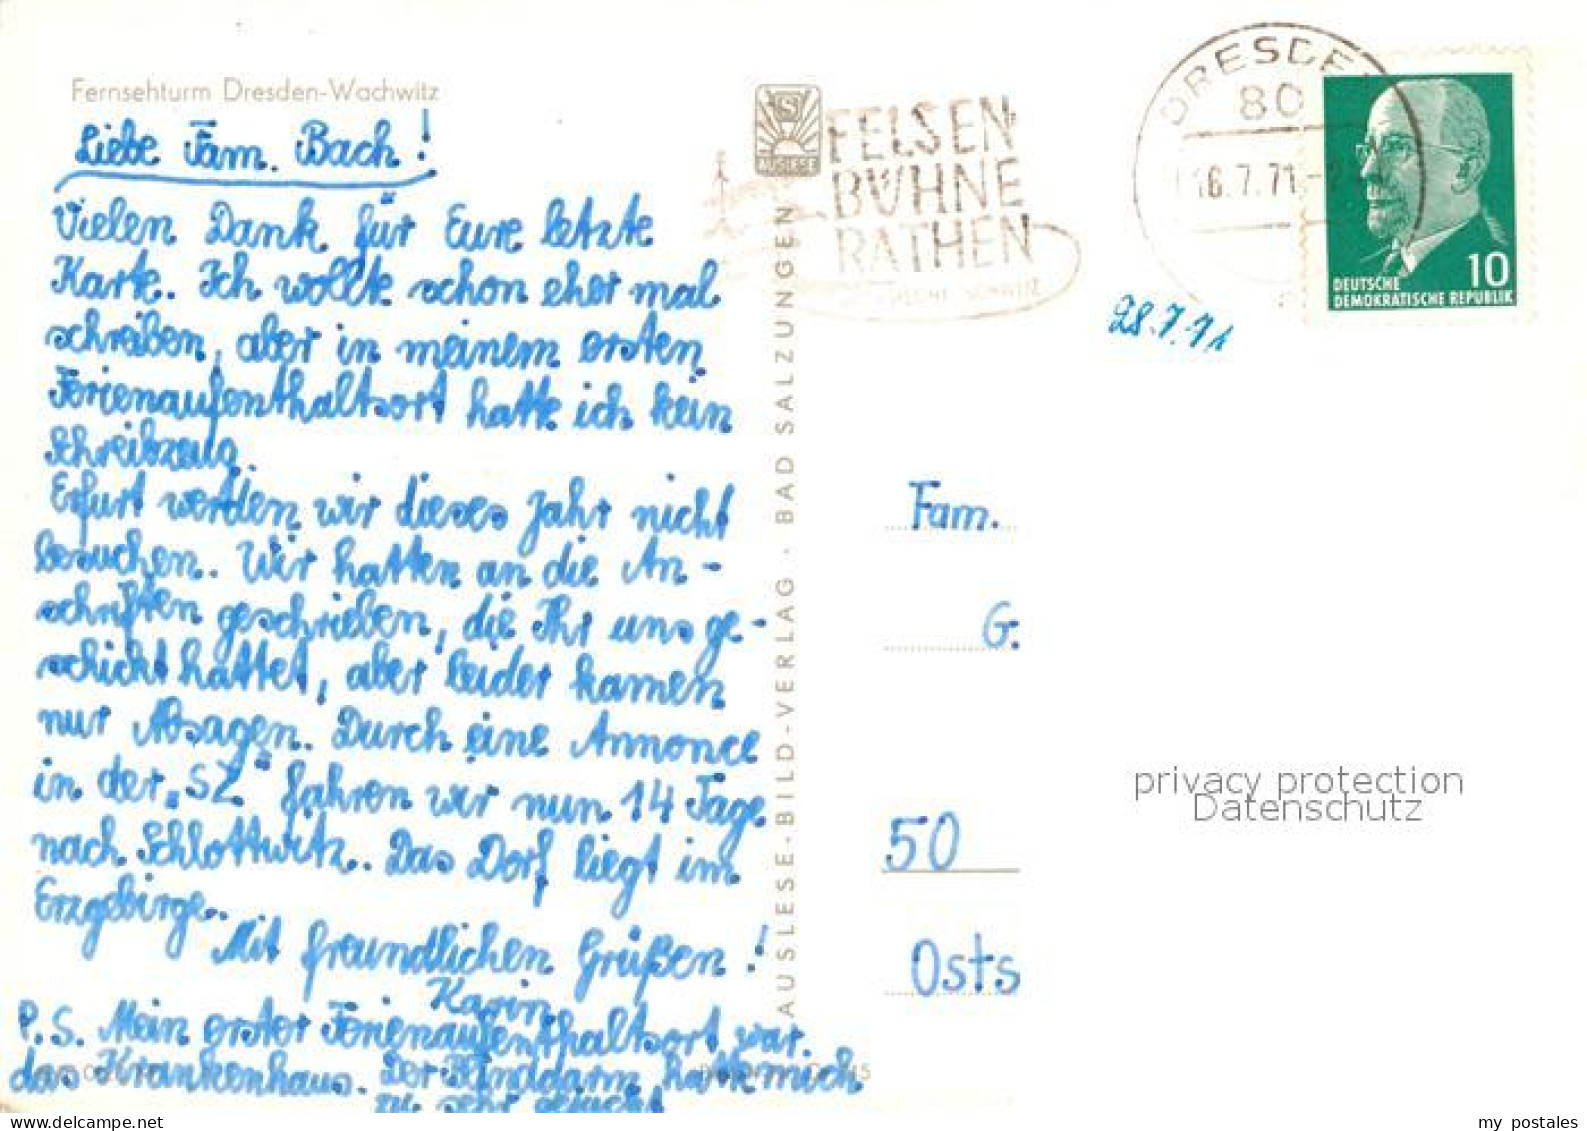 Fernsehturm Dresden-Wachwitz
Liebe Fam. Bach!
Vielen Dank für Eure letzte
Karte. Ich wollte schon eher mal
schreiben, aber in meinem ersten
Ferienaufenthaltsort hatte ich kein
Schreibzeug
Erfurt werden wir dieses Jahr nicht
besuchen. Wir hatten an die An-
schriften geschrieben, die Ihr uns ge-
schickt hattet, aber leider kamen
nur Absagen. Durch eine Annonce
in der „SZ" fahren wir nun 14 Tage
nach Schlottwitz. Das Dorf liegt im
Erzgebirge.
Mit freundlichen Grüßen!
Karin
P.S. Mein erster Ferienaufenthaltsort war
das Krankenhaus. Der Blinddarm hatte mich
zu sehr gejuckt
AUSLESE-BILD-VERLAG · BAD SALZUNGEN
AUSLESE
FELSEN
BÜHNE
RATHEN
DRESDEN
80
16.7.71
10
DEUTSCHE
DEMOKRATISCHE REPUBLIK
28.7.71
Fam.
G.
50
Osts
privacy protection
Datenschutz
www.delcampe.net
my_postales